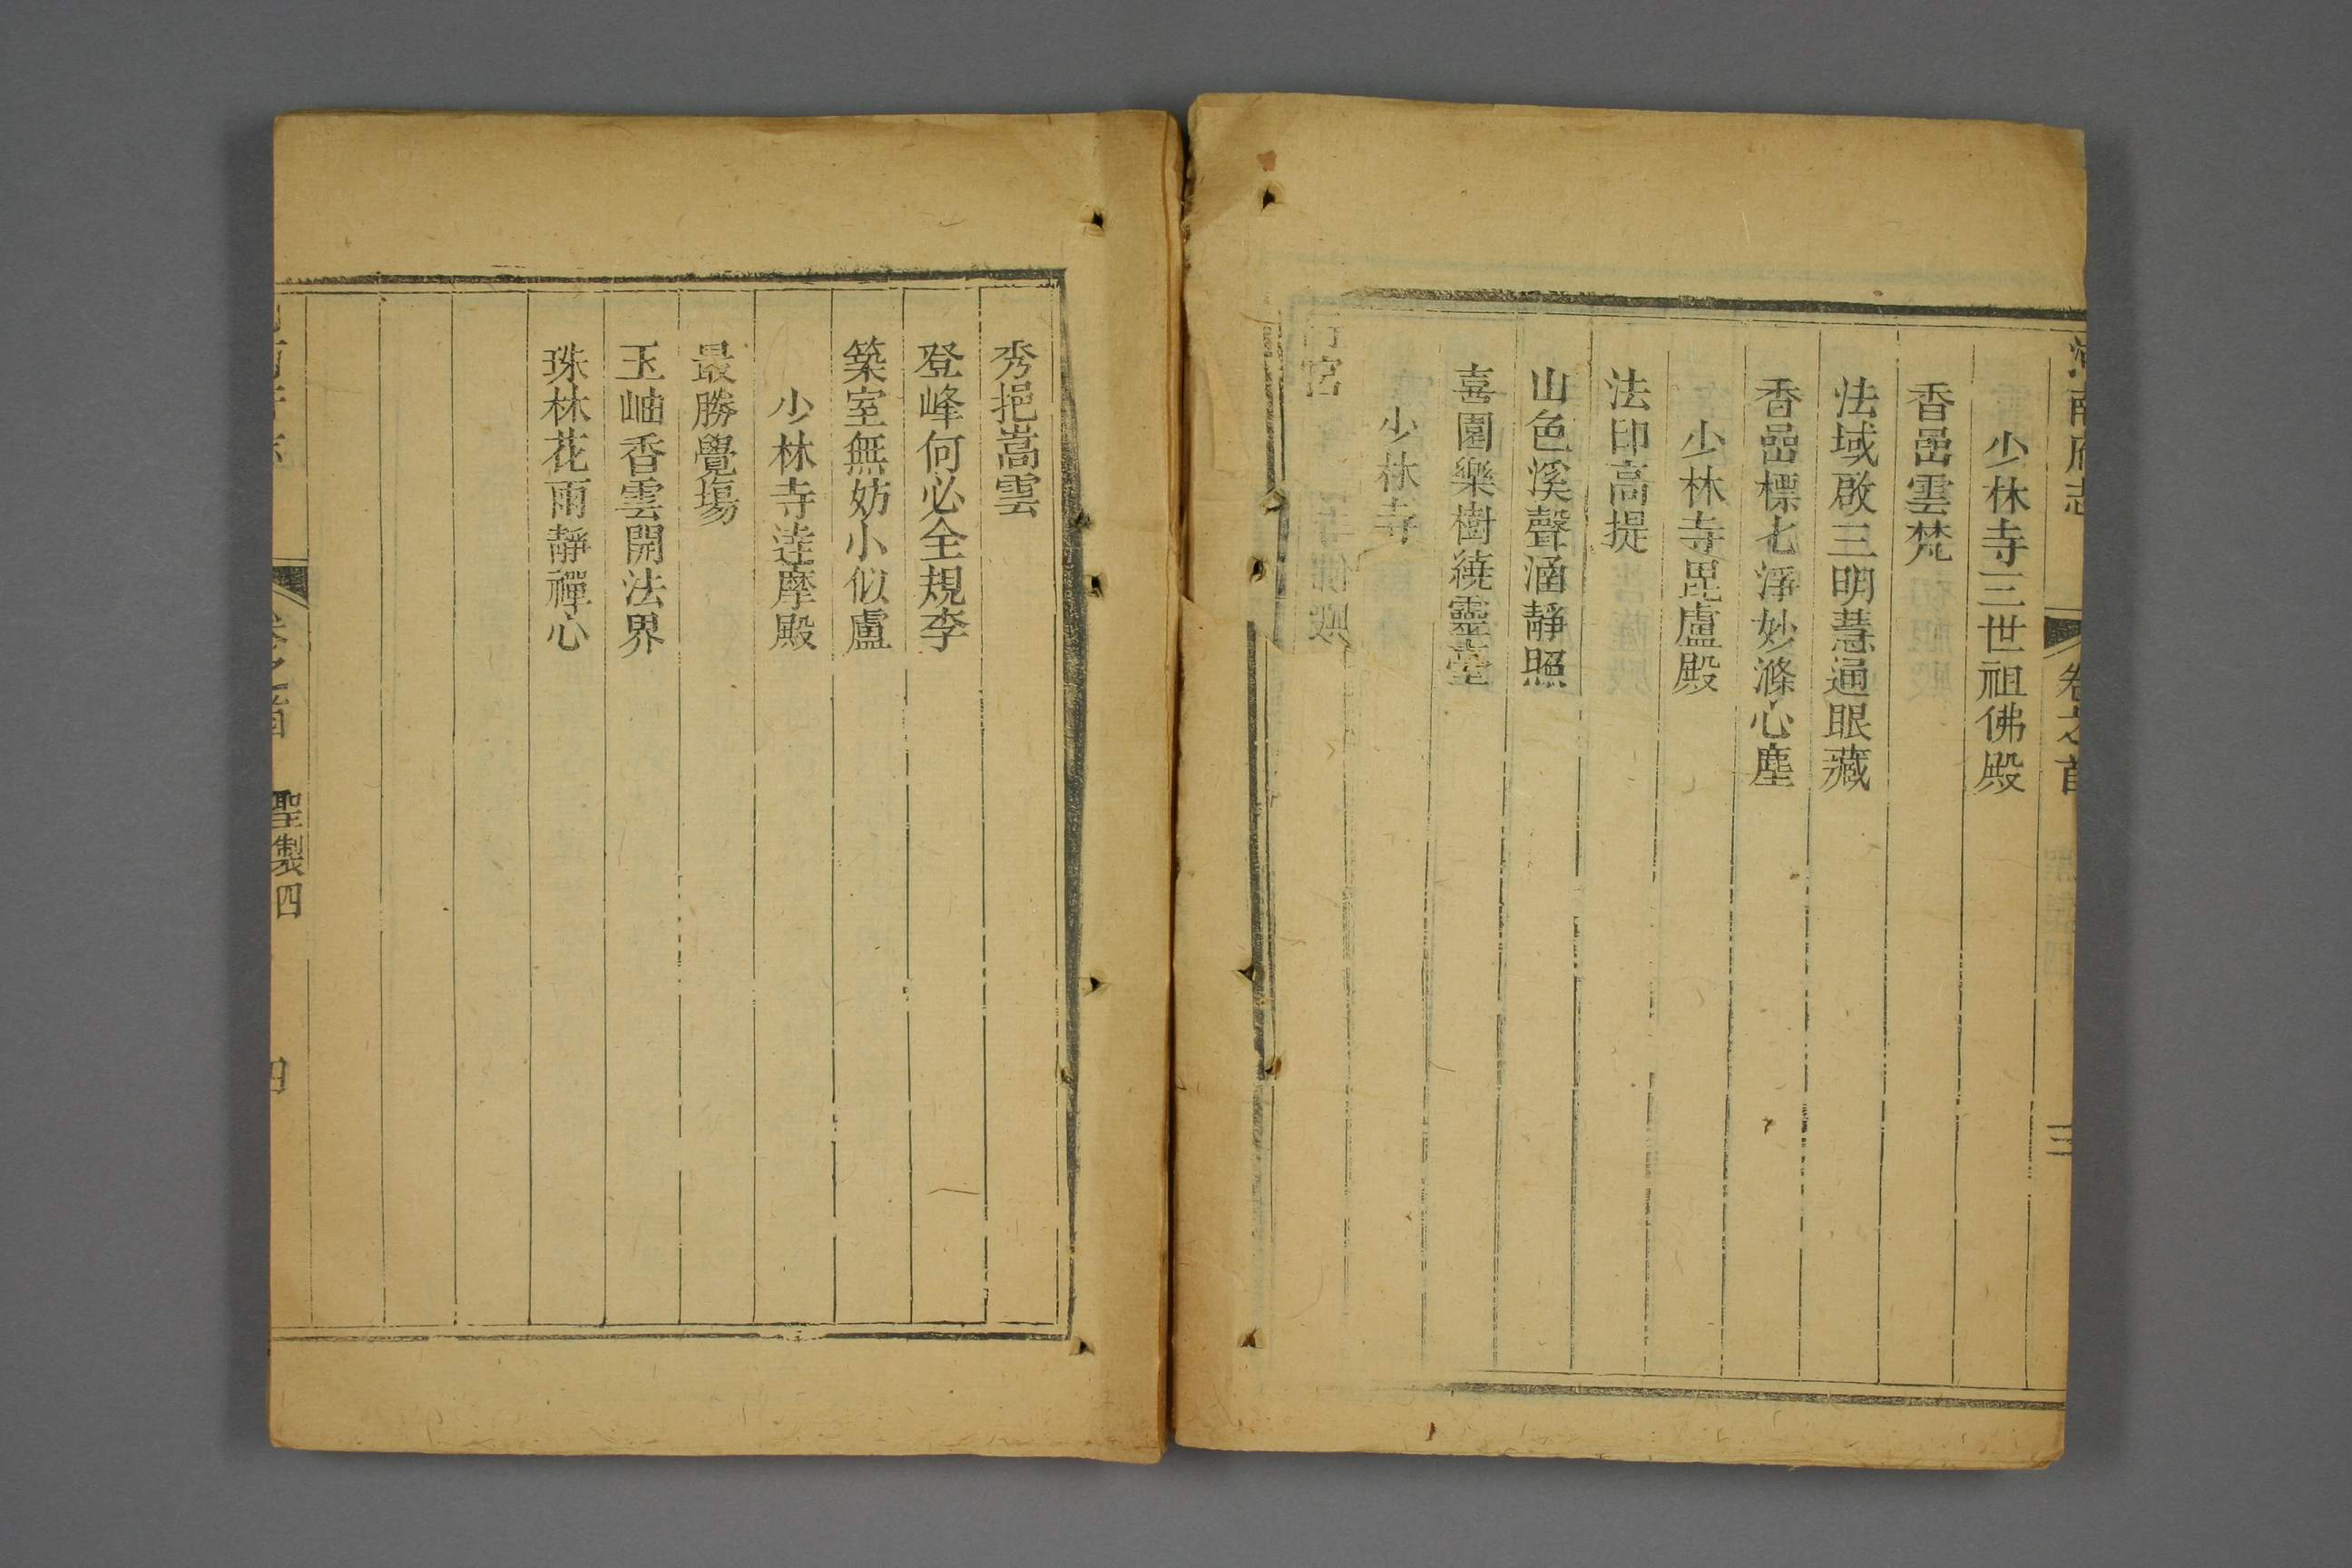 河南府志 卷之首 三
少林寺三世祖佛殿
香嵒雲梵
法域啟三明慧通眼藏
香嵒標七淨妙滌心塵
少林寺毘盧殿
法印高提
山色溪聲涵靜照
喜園樂樹繞靈臺
少林寺
行宮
秀挹嵩雲
登峰何必全規李
築室無妨小似盧
少林寺達摩殿
最勝覺場
玉岫香雲開法界
珠林花雨靜禪心
卷之首 聖製四 四